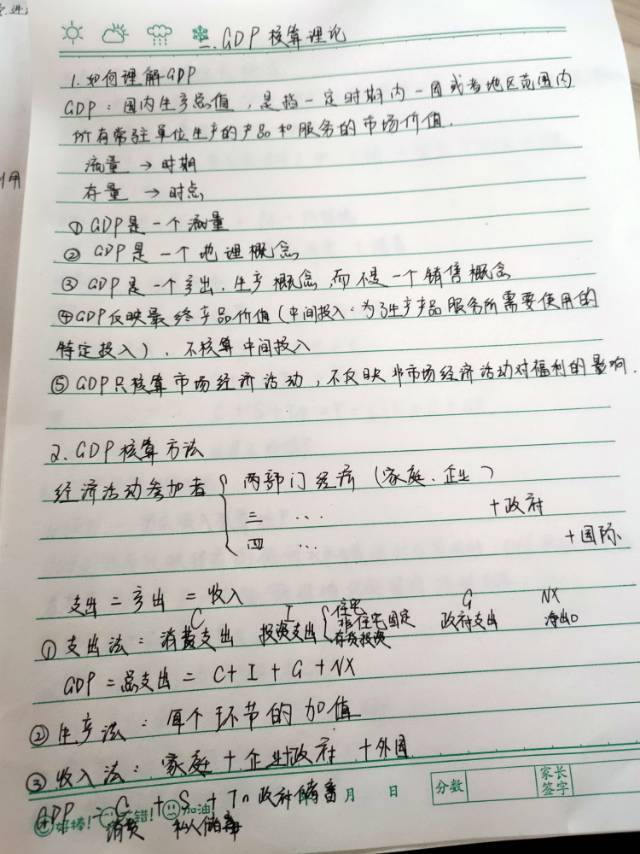 二.GDP核算理论
1.如何理解GDP
GDP：国内生产总值，是指一定时期内一国或者地区范围内
所有常驻单位生产的产品和服务的市场价值.
流量 → 时期
存量 → 时点
① GDP是一个流量
② GDP是一个地理概念
③ GDP是一个产出、生产概念,而不是一个销售概念
④GDP反映最终产品价值(中间投入:为了生产产品服务所需要使用的
特定投入)，不核算中间投入
⑤ GDP只核算市场经济活动，不反映非市场经济活动对福利的影响.
2.GDP核算方法
经济活动参加者 { 两部门经济 (家庭、企业)
三 ... +政府
四 ... +国际
支出 = 产出 = 收入
C I G NX
①支出法：消费支出 投资支出{住宅 非住宅固定 存货投资 政府支出 净出口
GDP=总支出= C+I+G+NX
②生产法：每个环节的加值
③收入法：家庭+企业+政府+外国
GDP = C + S + Tn 政府储蓄
消费 私人储蓄
好棒! 错! 加油! 月 日 分数 家长签字